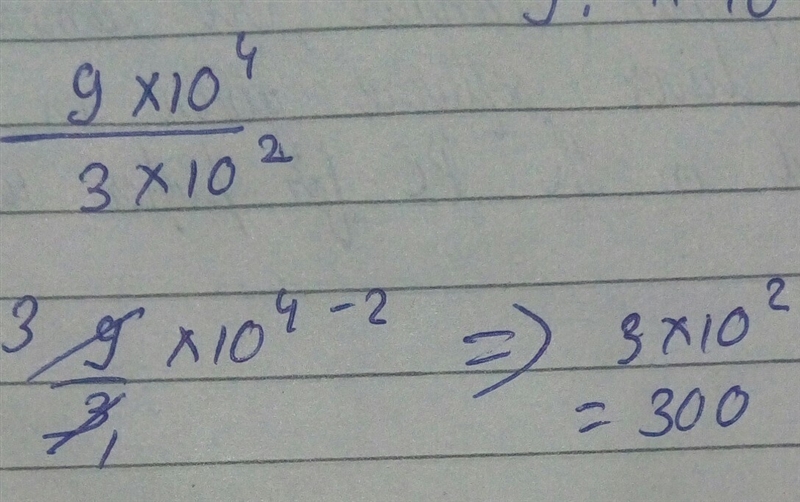 9 × 10^4
3 × 10^2
3 9 × 10^4-2 => 3 × 10^2
3 1 = 300